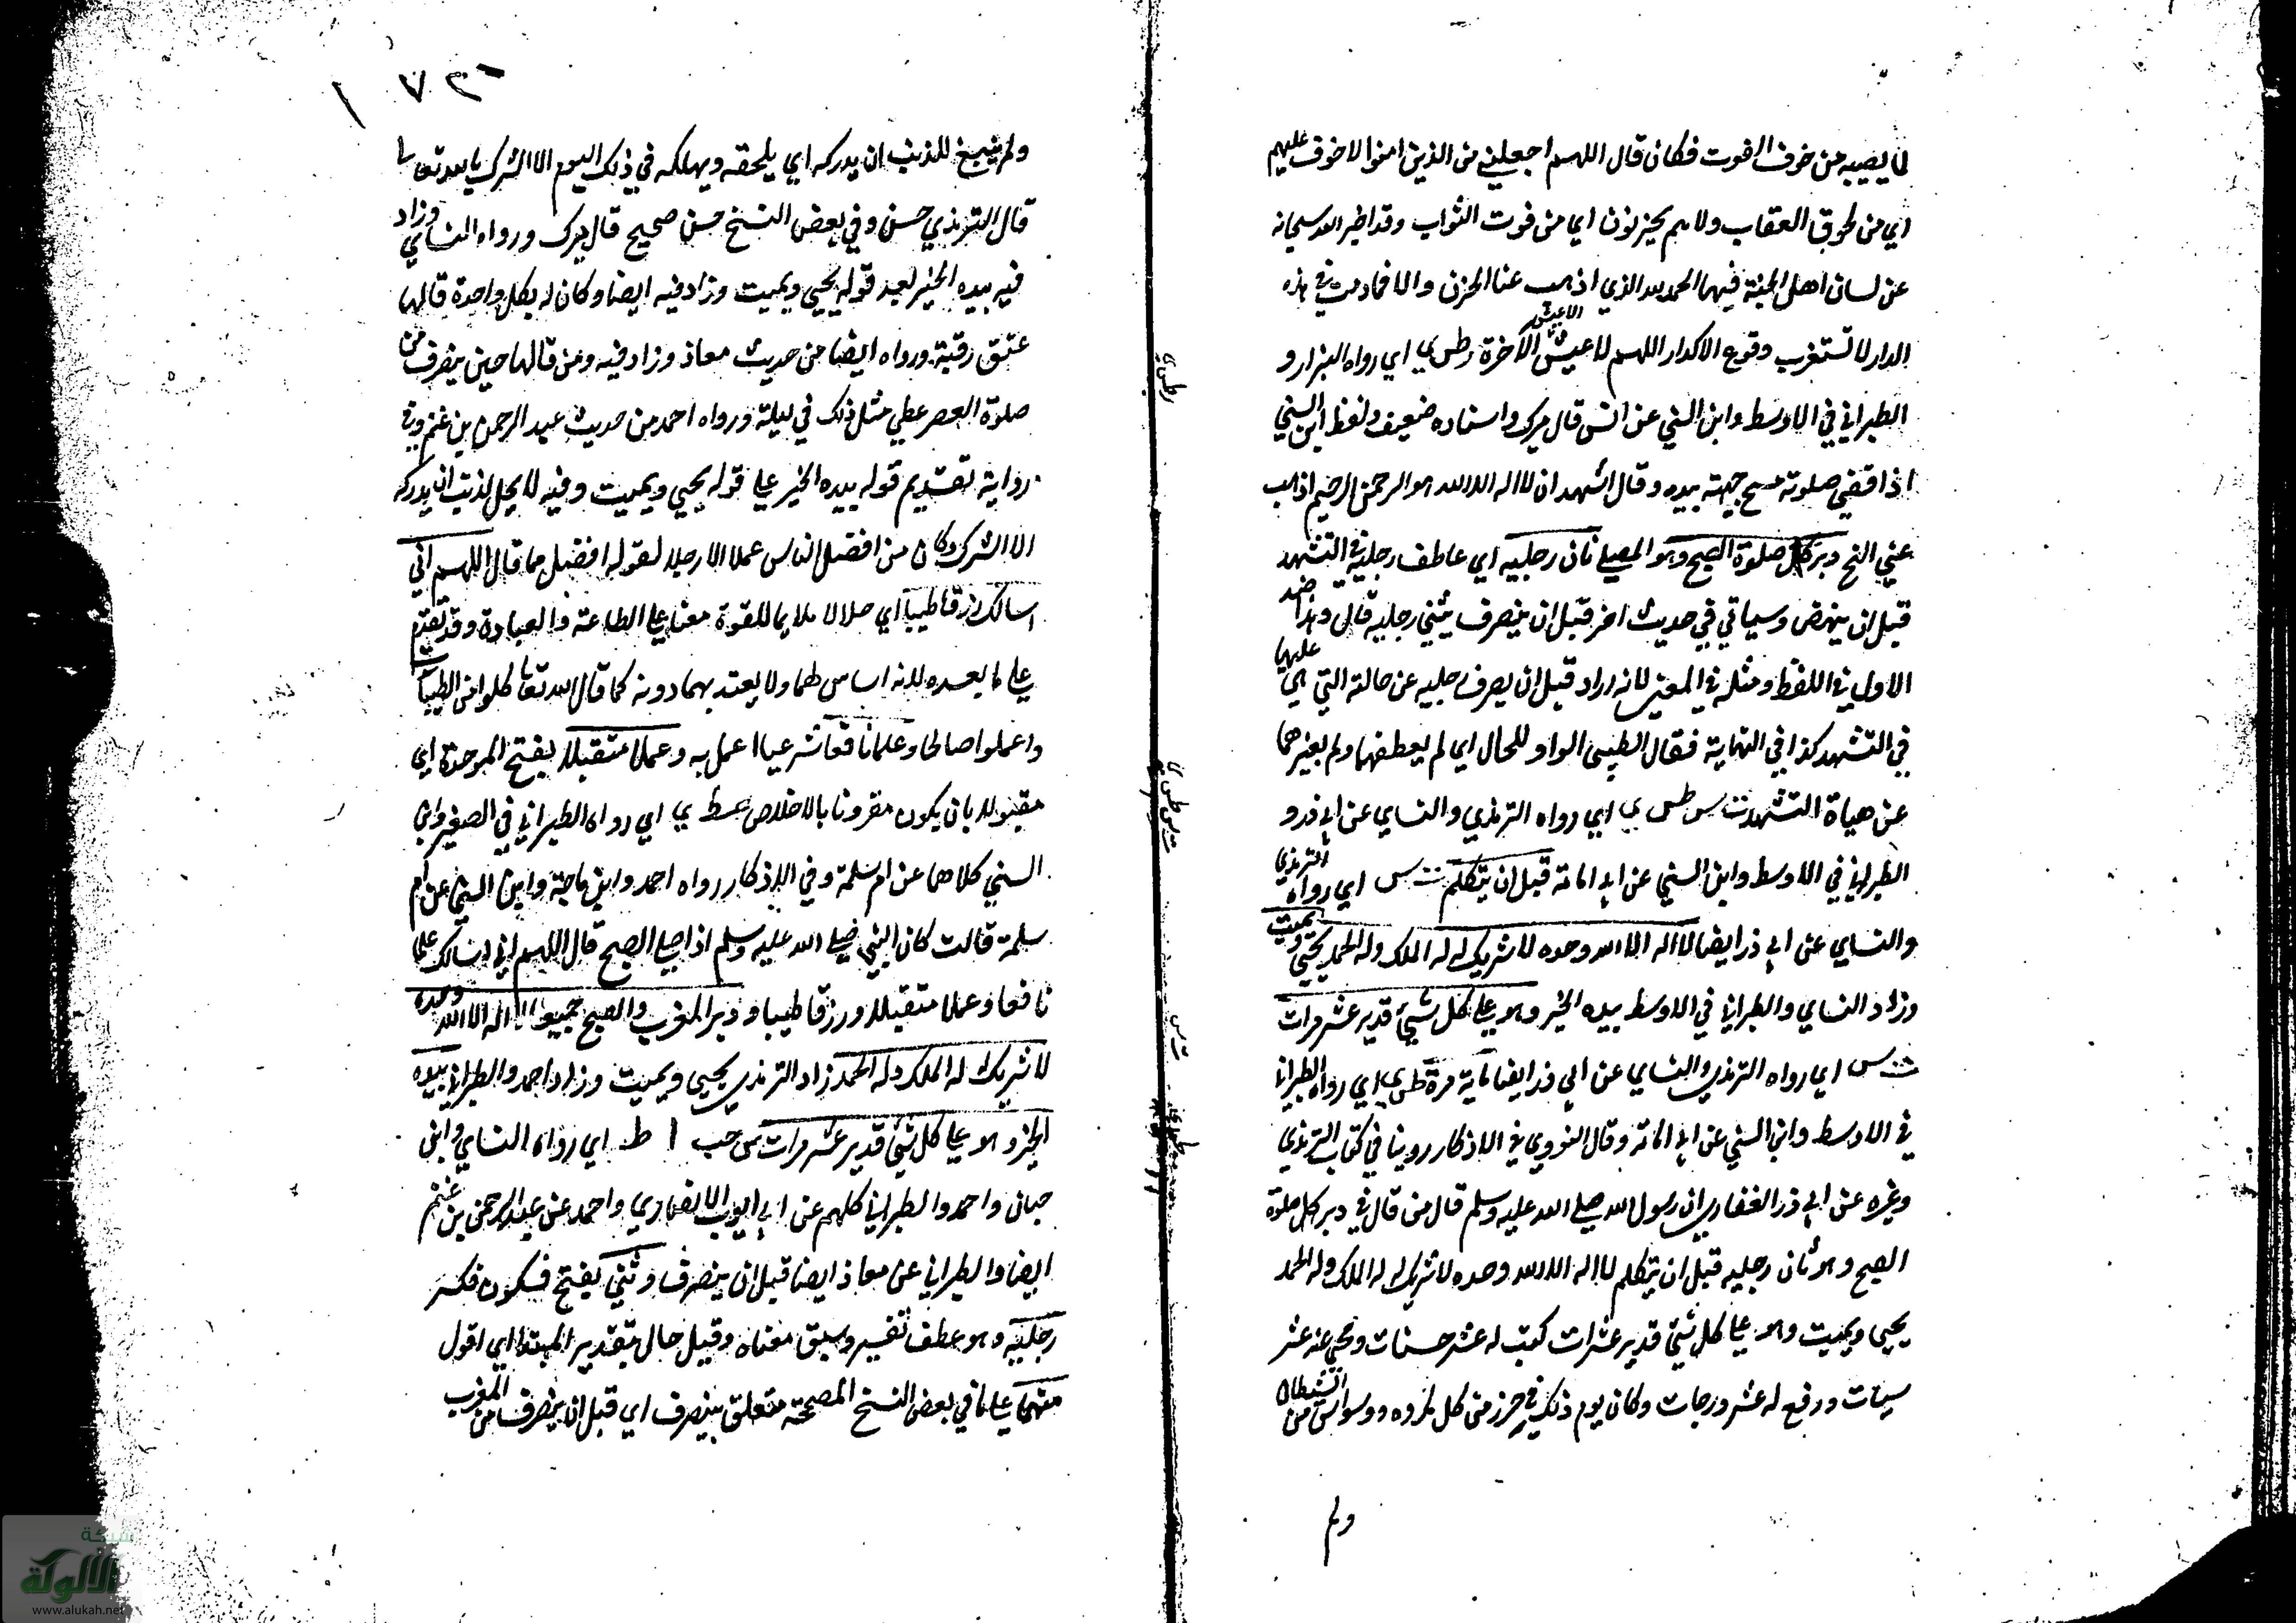 لما يصيبه من خوف الفوت فكان قال اللهم اجعلني من الذين امنوا لا خوف عليهم
اي من لحوق العقاب ولا هم يحزنون اي من فوت الثواب وقد اخبر الله سبحانه
عن لسان اهل الجنة فيها الحمد لله الذي اذهب عنا الحزن والا فمادمت في هذه
الدار لا تستغرب وقوع الاكدار اللهم لا عيش الا عيش الآخرة رطس ي اي رواه البزار و
الطبراني في الاوسط وابن السني عن انس قال ميرك واسناده ضعيف ولفظ ابن السني
اذا قضى صلوته مسح جبهته بيده وقال اشهد ان لا اله الا الله هو الرحمن الرحيم اذهب
عني الخ دبر كل صلوة الصبح وهو المصلي ثان رجليه اي عاطف رجليه في التشهد
قبل ان ينهض وسياتي في حديث اخر قبل ان ينصرف يثني رجليه قال وهذا ضد
الاول في اللفظ ومثله في المعنى لانه اراد قبل ان يصرف رجليه عن حالته التي هي عليها
في التشهد كذا في النهاية فقال الطيبي الواو للحال اي لم يعطفهما ولم يغيرهما
عن هياة التشهد ت س طس ي اي رواه الترمذي والنساي عن ابي ذر و
الطبراني في الاوسط وابن السني عن ابي امامة قبل ان يتكلم ت س اي رواه الترمذي
والنساي عن ابي ذر ايضا لا اله الا الله وحده لا شريك له له الملك وله الحمد يحيي ويميت
وزاد النساي والطبراني في الاوسط بيده الخير وهو على كل شيئ قدير عشر مرات
ت س اي رواه الترمذي والنساي عن ابي ذر ايضا ماية مرة طس ي اي رواه الطبراني
في الاوسط وابن السني عن ابي امامة وقال النووي في الاذكار روينا في كتاب الترمذي
وغيره عن ابي ذر الغفاري ان رسول الله صلى الله عليه وسلم قال من قال في دبر كل صلوة
الصبح وهو ثان رجليه قبل ان يتكلم لا اله الا الله وحده لا شريك له له الملك وله الحمد
يحيي ويميت وهو على كل شئ قدير عشر مرات كتب له عشر حسنات ومحي عنه عشر
سيات ورفع له عشر درجات وكان يوم ذلك في حرز من كل مكروه ووسواس من الشيطان
ولم
٢٧١
ولم ينبغ للذنب ان يدركه اي يلحقه ويهلكه في ذلك اليوم الا الشرك بالله تعالى
قال الترمذي حسن وفي بعض النسخ حسن صحيح قال ميرك ورواه النساي وزاد
فيه بيده الخير بعد قوله يحيي ويميت وزاد فيه ايضا وكان له بكل واحدة قالها
عتق رقبة ورواه ايضا من حديث معاذ وزاد فيه ومن قالها حين ينصرف من
صلوة العصر عطي مثل ذلك في ليلة ورواه احمد من حديث عبد الرحمن بن غنم وفي
رواية تقديم قوله بيده الخير على قوله يحيي ويميت وفيه لا يحل لذنب ان يدركه
الا الشرك وكان من افضل الناس عملا الا رجلا لقوله افضل مما قال اللهم اني
اسالك رزقا طيبا اي حلالا ملايما للقوة معنا على الطاعة والعبادة وقد تقدم
على ما بعده لانه اساس لهما ولا يعتد بهما دونه كما قال الله تعالى كلوا من الطيبات
واعملوا صالحا وعلما نافعا شرعيا اعمل به وعملا متقبلا بفتح الموحدة اي
مقبولا بان يكون مقرونا بالاخلاص صط ي اي رواه الطبراني في الصغير وابن
السني كلاهما عن ام سلمة وفي الاذكار رواه احمد وابن ماجة وابن السني عن ام
سلمة قالت كان النبي صلى الله عليه وسلم اذا صلى الصبح قال اللهم اني اسالك علما
نافعا وعملا متقبلا ورزقا طيبا ودبر المغرب والصبح جميعا لا اله الا الله وحده
لا شريك له له الملك وله الحمد زاد الترمذي يحيي ويميت وزاد احمد والطبراني بيده
الخير وهو على كل شئ قدير عشر مرات س حب ا ط اي رواه النساي وابن
حبان واحمد والطبراني كلهم عن ابي ايوب الانصاري واحمد عن عبد الرحمن بن غنم
ايضا والطبراني عن معاذ ايضا قبل ان ينصرف وثني بفتح فسكون فكسر
رجليه وهو عطف تفسير وسبق معناه وقيل حال بتقدير المبتدا اي اقول
منهما على ما في بعض النسخ المصححة متعلق بينصرف اي قبل ان ينصرف من المغرب
رطس ي
ت س طس ي
ت س
شبكة
الألوكة
www.alukah.net